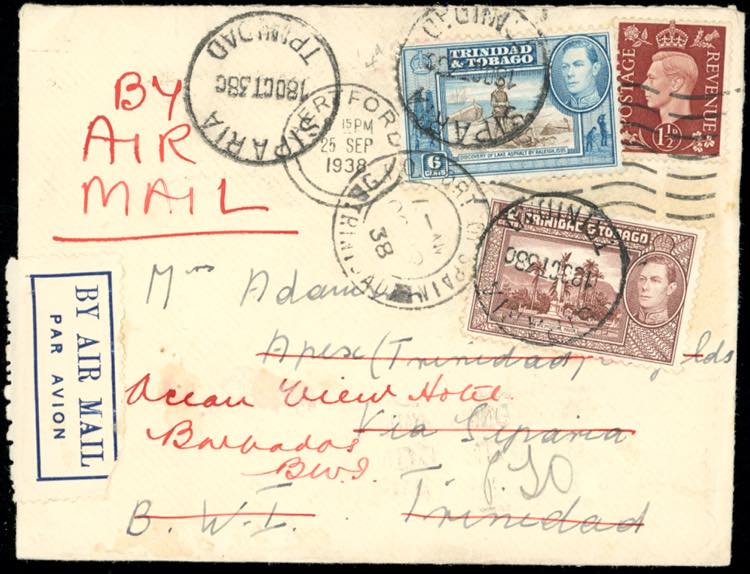 BY
AIR
MAIL
SIPARIA
18 OCT 38
TRINIDAD
15 PM
25 SEP
1938
SIPARIA
TRINIDAD
& TOBAGO
6
CENTS
DISCOVERY OF LAKE ASPHALT BY RALEIGH, 1595
POSTAGE
REVENUE
1½D
PORT OF SPAIN
AM
38
TRINIDAD & TOBAGO
18 OCT 38
Mrs Adam
Apex (Trinidad)
lds
Ocean View Hotel
Via Siparia
Barbados
BWI.
B. W. I. Trinidad
BY AIR MAIL
PAR AVION